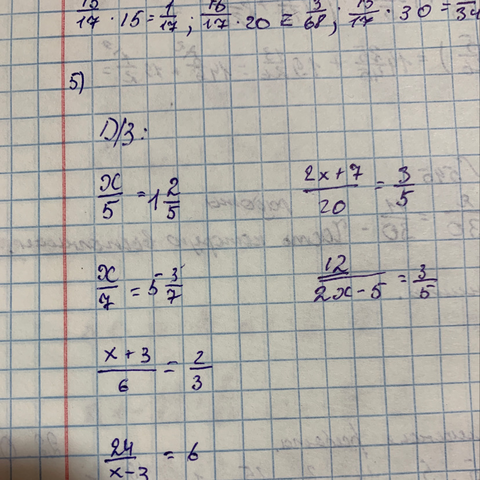 15/17 · 15 = 1/17; 16/17 · 20 = 3/68; 15/17 · 30 = /34
5)
D/З:
x/5 = 1 2/5
(2x+7)/20 = 3/5
x/7 = 5 3/7
12/(2x-5) = 3/5
(x+3)/6 = 2/3
24/(x-3) = 6